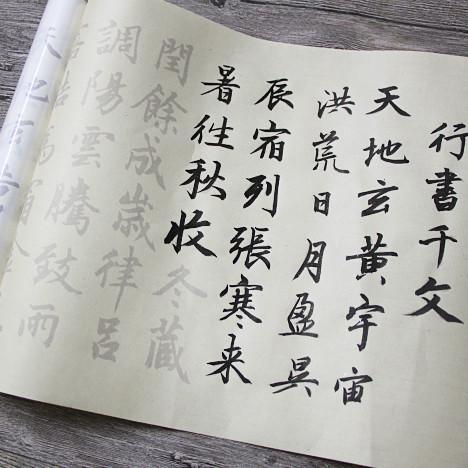 行書千文
天地玄黄宇宙
洪荒日月盈昃
辰宿列張寒来
暑往秋收冬藏
閏餘成歲律呂
調陽雲騰致雨
結為霜金